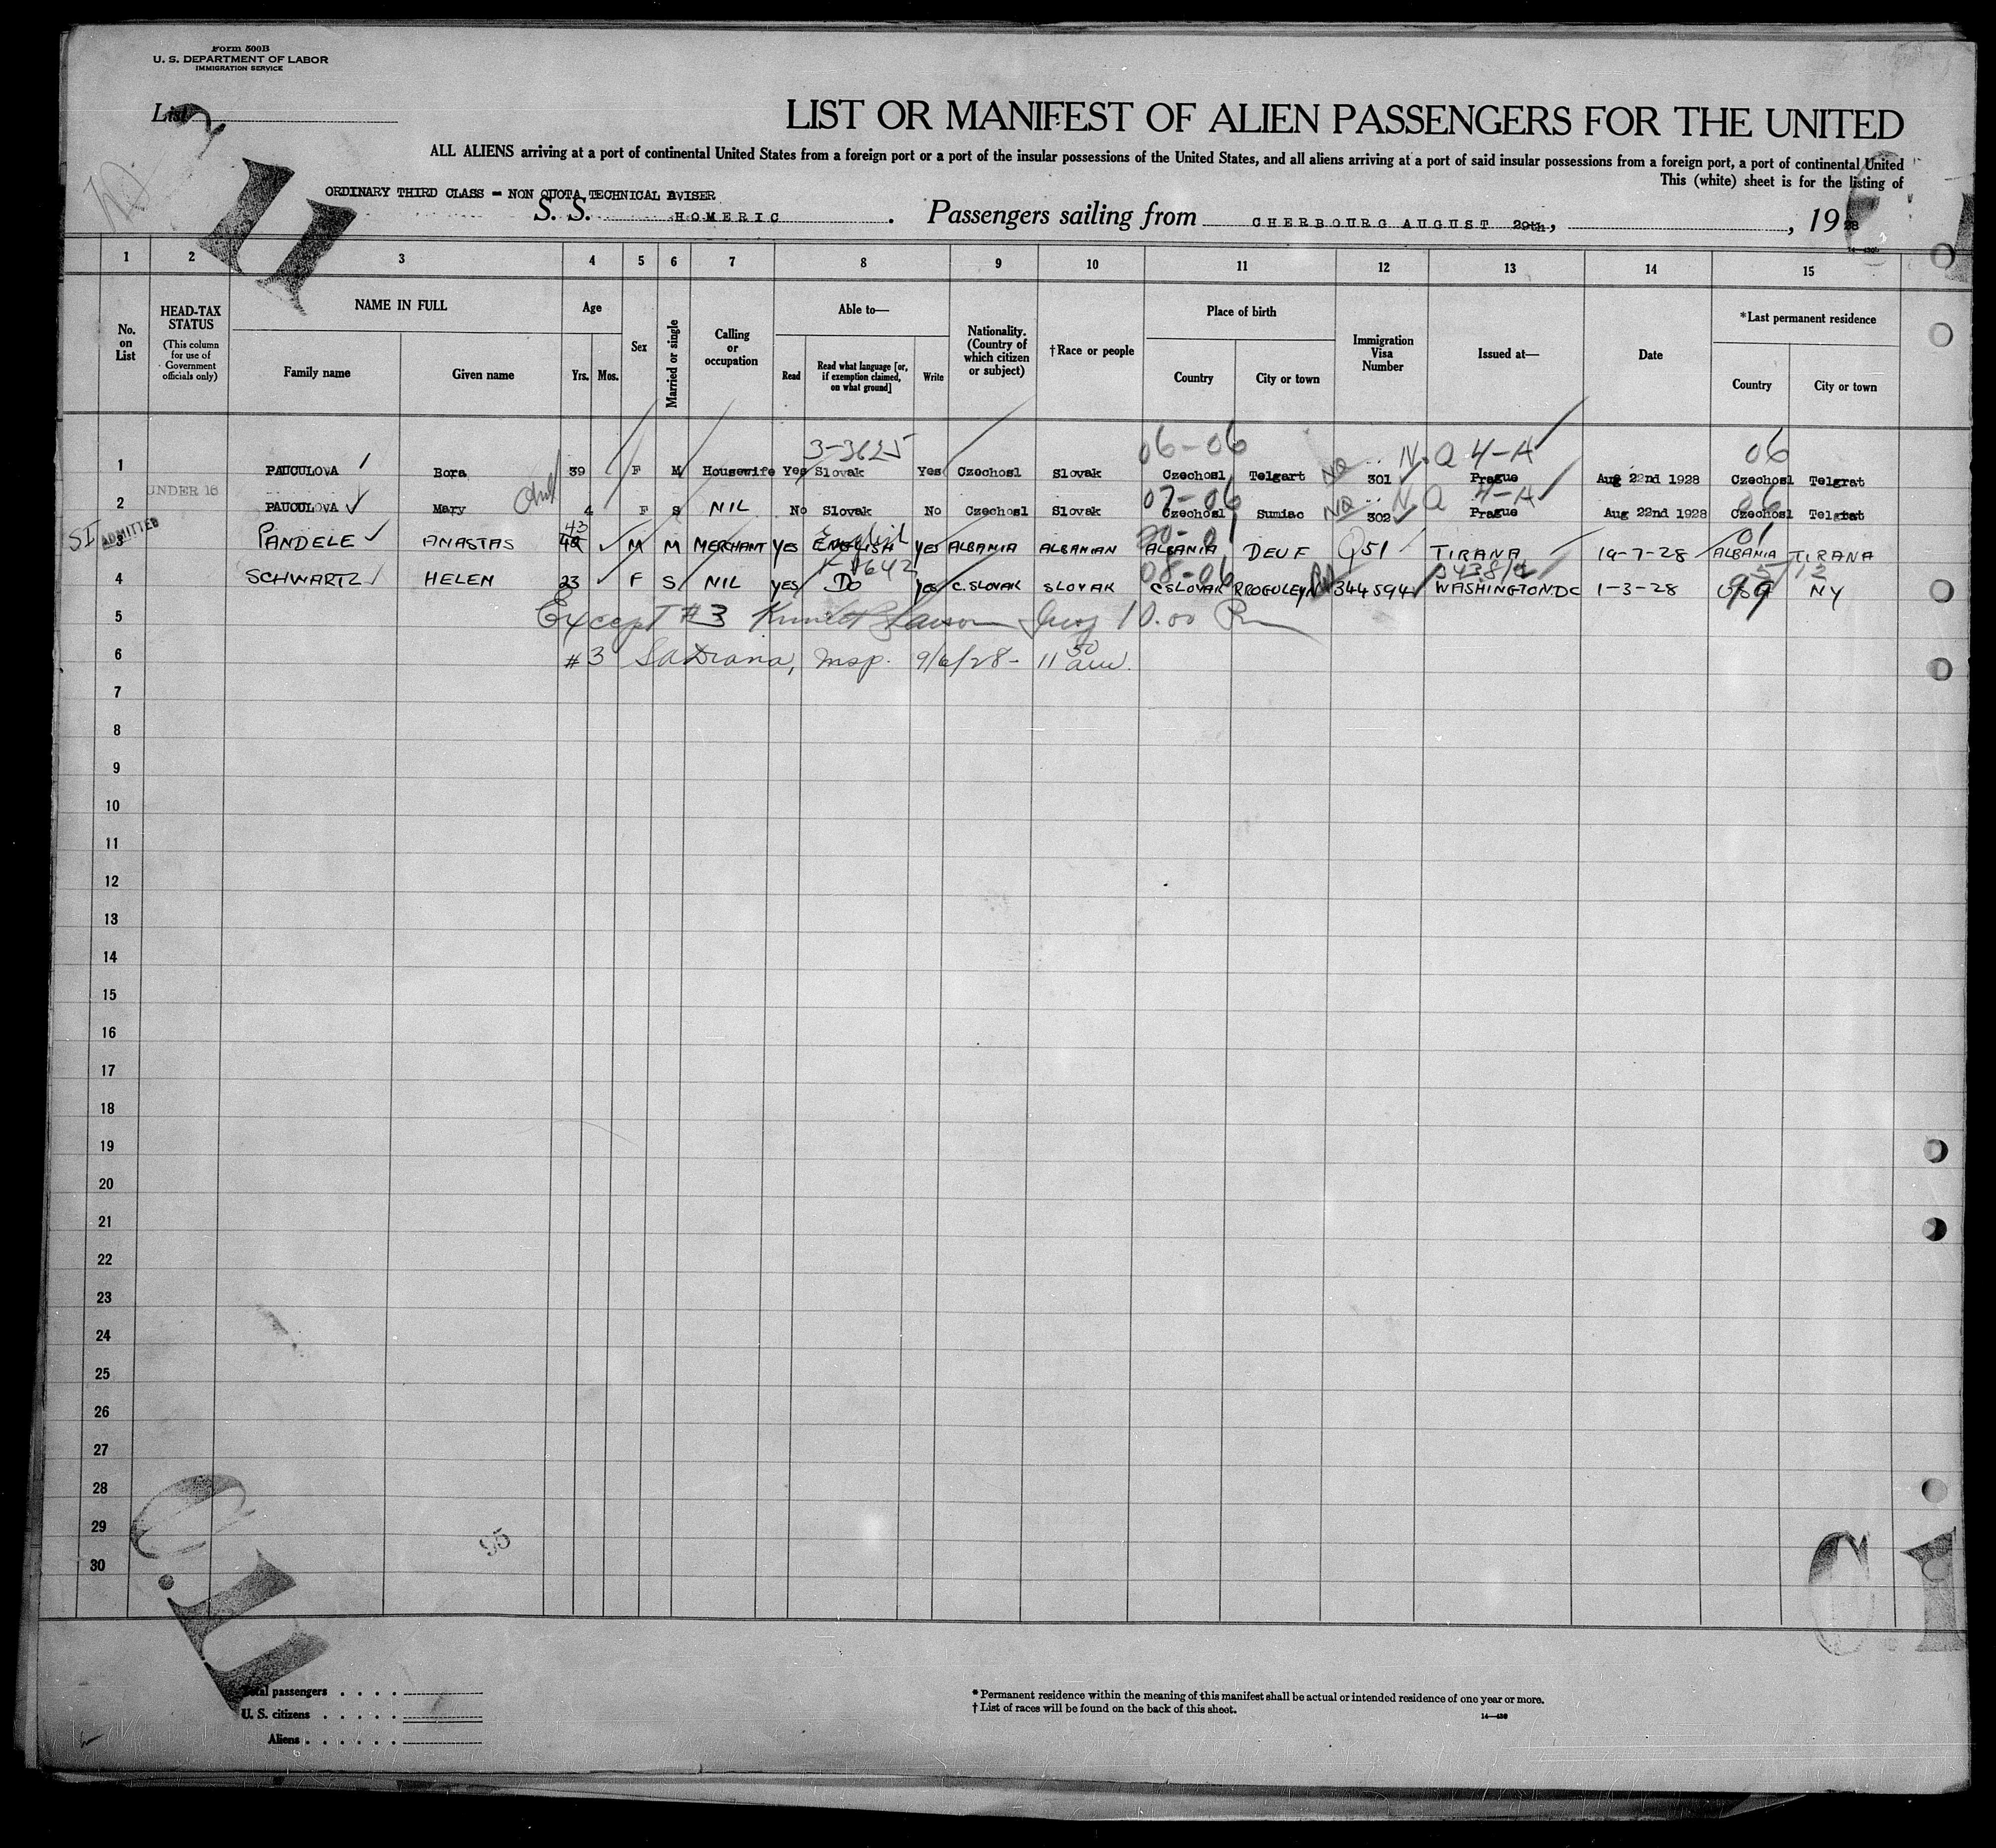 Form 500B
U. S. DEPARTMENT OF LABOR
IMMIGRATION SERVICE
List
LIST OR MANIFEST OF ALIEN PASSENGERS FOR THE UNITED
ALL ALIENS arriving at a port of continental United States from a foreign port or a port of the insular possessions of the United States, and all aliens arriving at a port of said insular possessions from a foreign port, a port of continental United
This (white) sheet is for the listing of
ORDINARY THIRD CLASS - NON QUOTA TECHNICAL AVISER
S. S. HOMERIC. Passengers sailing from CHERBOURG AUGUST 29th, , 1928
1 2 3 4 5 6 7 8 9 10 11 12 13 14 15
No. on List
HEAD-TAX STATUS (This column for use of Government officials only)
NAME IN FULL
Family name Given name
Age
Yrs. Mos.
Sex
Married or single
Calling or occupation
Able to—
Read Read what language [or, if exemption claimed, on what ground] Write
Nationality. (Country of which citizen or subject)
†Race or people
Place of birth
Country City or town
Immigration Visa Number
Issued at—
Date
*Last permanent residence
Country City or town
3-3625 06-06 N.Q 4-A 06
1 PAUCULOVA Bora 39 F M Housewife Yes Slovak Yes Czechosl Slovak Czechosl Telgart NQ 301 Prague Aug 22nd 1928 Czechosl Telgrat
UNDER 16 07-06 NQ 4-A 06
2 PAUCULOVA Mary 4 F S NIL No Slovak No Czechosl Slovak Czechosl Sumiac NQ 302 Prague Aug 22nd 1928 Czechosl Telgrat
SI ADMITTED 43 English 01
3 PANDELE ANASTAS M M MERCHANT YES ENGLISH YES ALBANIA ALBANIAN ALBANIA DEUF Q51 TIRANA 19-7-28 ALBANIA TIRANA
08-06
4 SCHWARTZ HELEN 23 F S NIL YES DO YES C.SLOVAK SLOVAK C SLOVAK 344594 WASHINGTON DC 1-3-28 USA NY
5 Except #3 10.00
6 #3 Insp. 9/6/28 - 11 50 am.
7
8
9
10
11
12
13
14
15
16
17
18
19
20
21
22
23
24
25
26
27
28
29
30
95
Total passengers . . . .
U. S. citizens . . . . .
Aliens . . . . . .
* Permanent residence within the meaning of this manifest shall be actual or intended residence of one year or more.
† List of races will be found on the back of this sheet.
14—430